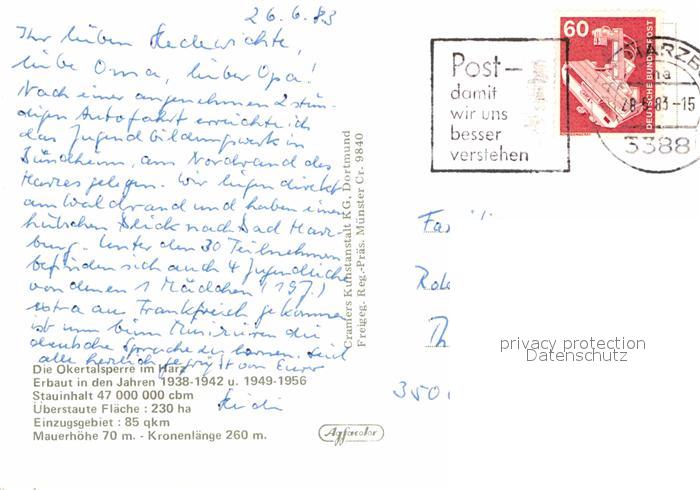 26.6.83
Ihr lieben Heckewichte,
liebe Oma, lieber Opa!
Nach einer angenehmen 2 stün-
digen Autofahrt erreichte ich
das Jugendbildungswerk in
Bündheim, am Nordrand des
Harzes gelegen. Wir liegen direkt
am Waldrand und haben einen
hübschen Blick nach Bad Harz-
burg. Unter den 30 Teilnehmern
befinden sich auch 4 Jugendliche
von denen 1 Mädchen (19 J.)
extra aus Frankreich gekommen
ist um beim Musizieren die
deutsche Sprache zu lernen. Seid
alle herzlich gegrüßt von Eurer
Heidi
Die Okertalsperre im Harz
Erbaut in den Jahren 1938-1942 u. 1949-1956
Stauinhalt 47 000 000 cbm
Überstaute Fläche : 230 ha
Einzugsgebiet : 85 qkm
Mauerhöhe 70 m. - Kronenlänge 260 m.
Cramers Kunstanstalt KG, Dortmund
Freigeg. Reg.-Präs. Münster Cr. 9840
Agfacolor
Post-
damit
wir uns
besser
verstehen
60
DEUTSCHE BUNDESPOST
ha
28.6.83-15
3388
Fa
350
privacy protection
Datenschutz